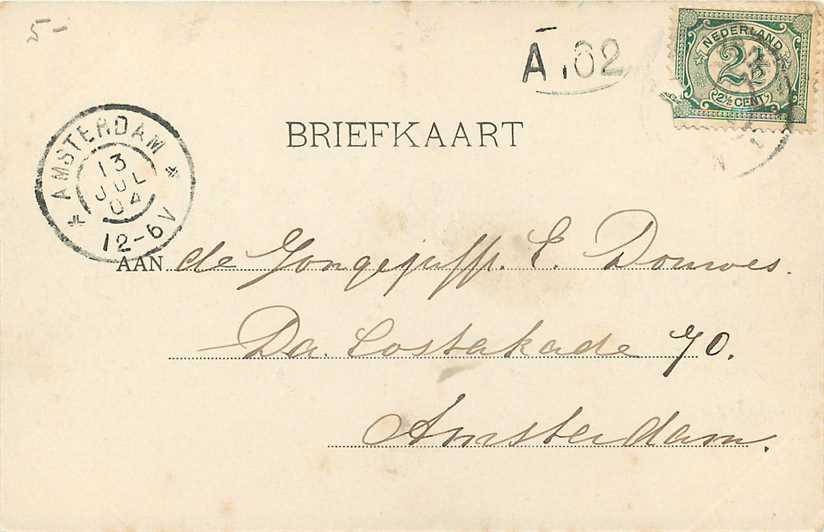 5-
A .02
NEDERLAND
2½
2½ CENT
BRIEFKAART
* AMSTERDAM *
13
JUL
04
12-6V
AAN de Jongejuffr. E. Douwes.
Da. Costakade 70.
Amsterdam.